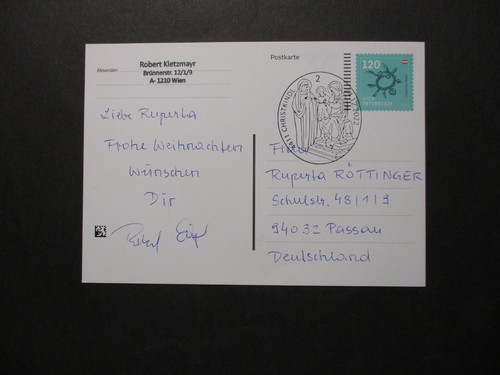 Absender:
Robert Kletzmayr
Brünnerstr. 12/1/9
A- 1210 Wien
Postkarte
2
4411 CHRISTKINDL
2022
120
ÖSTERREICH
Liebe Ruperta
Frohe Weihnachten
wünschen
Dir
Frau
Ruperta RÖTTINGER
Schulstr. 48/1/9
94032 Passau
Deutschland